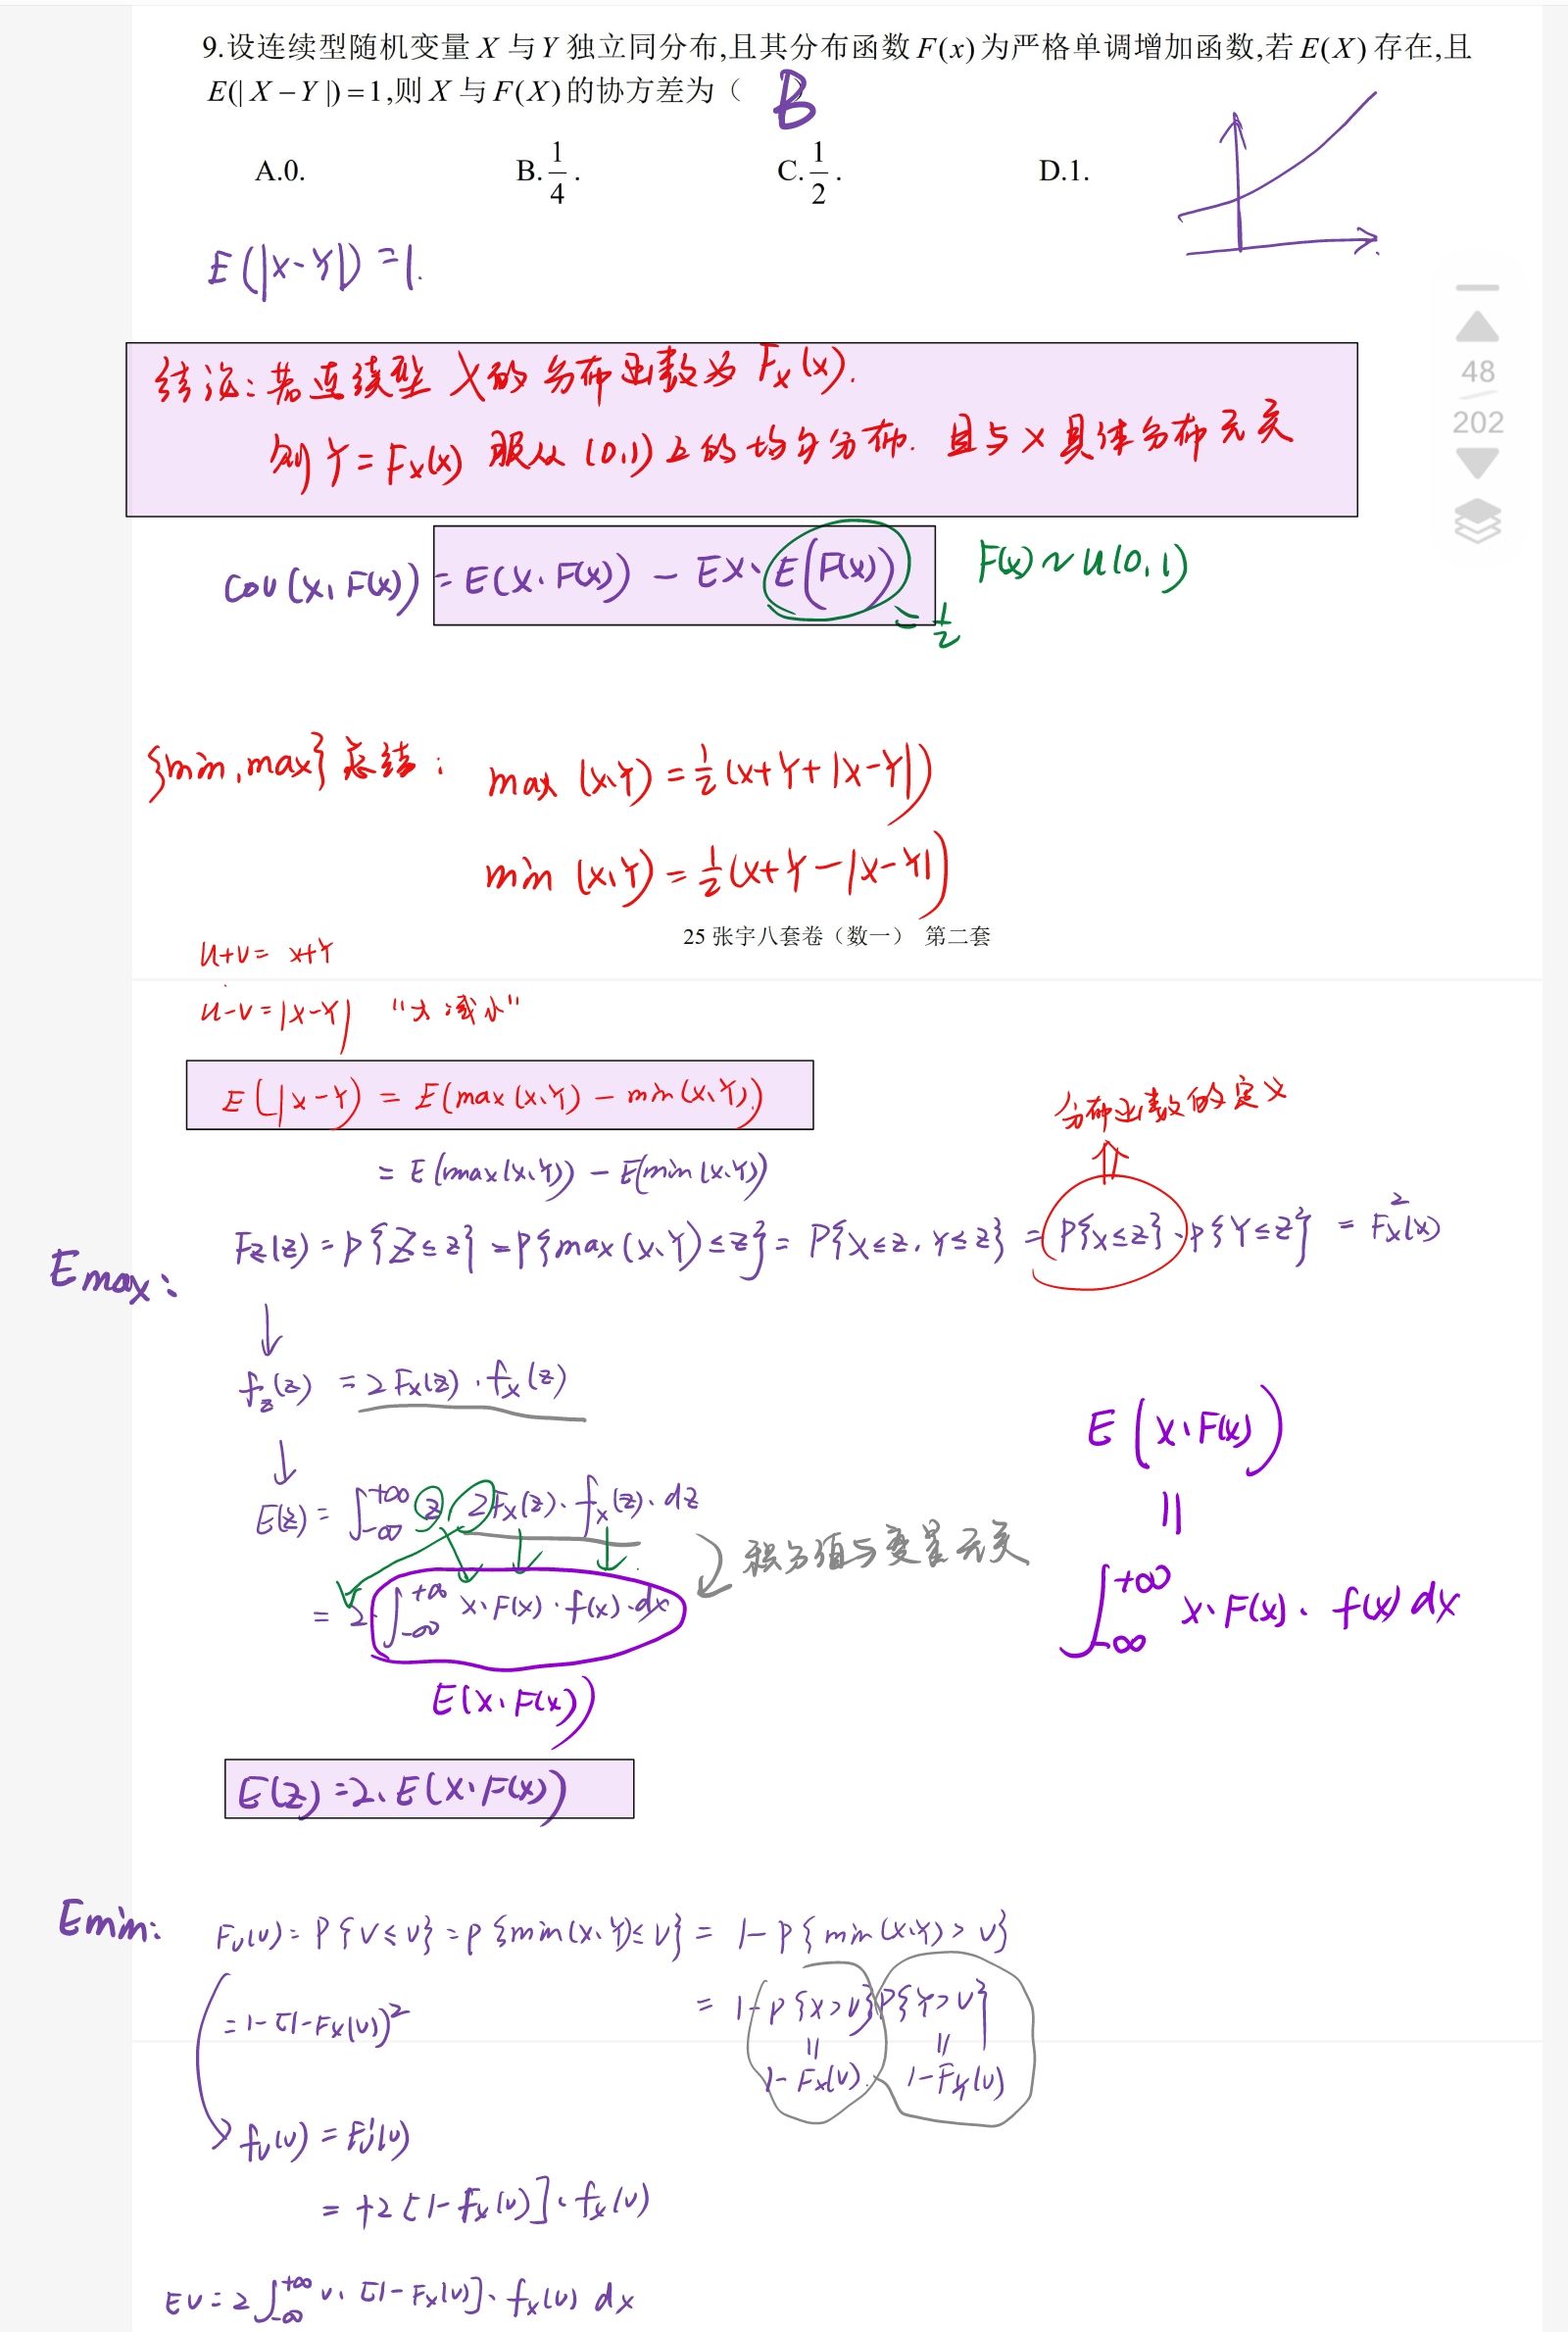 9.设连续型随机变量 X 与 Y 独立同分布,且其分布函数 F(x) 为严格单调增加函数,若 E(X) 存在,且
E(| X − Y |) = 1,则 X 与 F(X) 的协方差为（ B
A.0. B. 1/4 . C. 1/2 . D.1.
E(|X-Y|) = 1.
48
202
结论: 若连续型 X的分布函数为 F_X(x).
则 Y = F_X(x) 服从 (0,1) 上的均匀分布. 且与 X 具体分布无关
COV(X, F(X)) = E(X·F(X)) - EX·E(F(X)) = 1/2 F(X) ~ U(0,1)
{min, max} 总结:
max (X,Y) = 1/2 (X+Y+|X-Y|)
min (X,Y) = 1/2 (X+Y-|X-Y|)
25 张宇八套卷（数一） 第二套
U+V = X+Y
U-V = |X-Y| “大减小”
E(|X-Y) = E(max(X,Y) - min(X,Y))
分布函数的定义
= E(max(X,Y)) - E(min(X,Y))
Emax:
F_Z(z) = P{Z≤z} = P{max(X,Y)≤z} = P{X≤z, Y≤z} = P{X≤z}·P{Y≤z} = F_X²(x)
↓
f_Z(z) = 2F_X(z)·f_X(z)
↓
E(X·F(X))
E(Z) = ∫_{-∞}^{+∞} z·2F_X(z)·f_X(z)·dz
=
积分值与变量无关
= 2·∫_{-∞}^{+∞} x·F(x)·f(x)·dx
∫_{-∞}^{+∞} x·F(x)·f(x)dx
E(X·F(X))
E(Z) = 2·E(X·F(X))
Emin:
F_V(v) = P{V≤v} = P{min(X,Y)≤v} = 1-P{min(X,Y)>v}
= 1-P{X>v}P{Y>v}
= 1-[1-F_X(v))²
= =
1-F_X(v). 1-F_Y(v)
f_V(v) = F_V'(v)
= +2[1-F_X(v)]·f_X(v)
EV = 2∫_{-∞}^{+∞} v·[1-F_X(v)]·f_X(v) dx